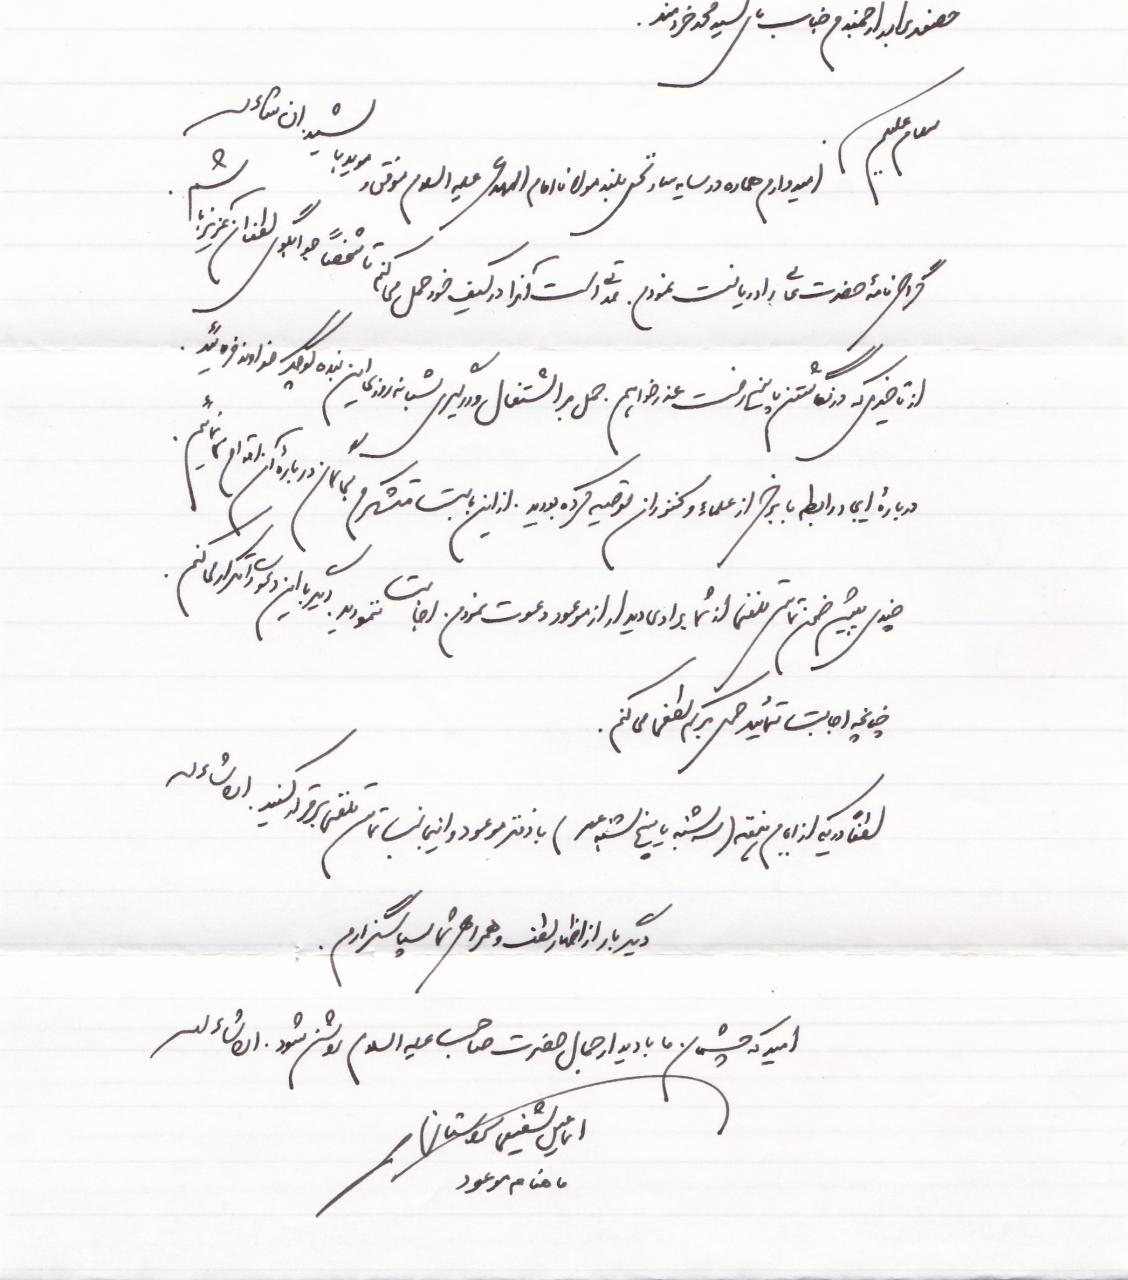 حضور برادر ارجمندم جناب آقای سید محمد خردمند.
سلام علیکم
امیدوارم همواره در سایه سار نخل بلند مولانا امام المهدی علیه السلام موفق و موید باشید. ان شاءالله
گرامی نامهٔ حضرت عالی را دریافت نمودم. مدتی است آنرا در کیف خود حمل می کنم تا شخصاً جوابگوی لطف آن عزیز باشم.
از تاخیری که در نگاشتن پاسخ رفت عذرخواهم. حمل بر اشتغال و درگیری شبانه روزی این بنده کوچک خداوند فرمائید.
دربارهٔ ایجاد رابطه با برخی از علماء و سخنوران توصیه کرده بودید. از این بابت متشکرم بی گمان دربارهٔ آن اقدام می نمائیم.
چندی پیش ضمن تماس تلفنی از شما برای دیدار از موعود دعوت نمودم. اجابت ننمودید. دیگر بار این دعوت را تکرار می کنم.
چنانچه اجابت نمائید حمل بر کرم لطف می کنم.
لطفاً در یکی از ایام هفته (سه شنبه یا پنج شنبه عصر) با دفتر موعود و اینجانب تماس تلفنی برقرار کنید. ان شاءالله
دیگر بار از اظهار لطف و همراهی شما سپاسگزارم.
امید که چشمان ما با دیدار جمال حضرت صاحب علیه السلام روشن شود. ان شاءالله
اسماعیل شفیعی سروستانی
ماهنامه موعود